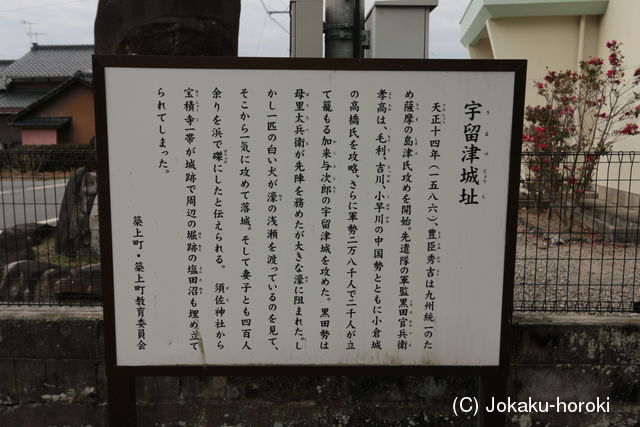 宇留津城址
天正十四年(一五八六)、豊臣秀吉は九州統一のた
め薩摩の島津氏攻めを開始。先遣隊の軍監黒田官兵衛
孝高は、毛利、吉川、小早川の中国勢とともに小倉城
の高橋氏を攻略、さらに軍勢二万八千人で二千人が立
て籠もる加来与次郎の宇留津城を攻めた。黒田勢は
母里太兵衛が先陣を務めたが大きな濠に阻まれた。し
かし一匹の白い犬が濠の浅瀬を渡っているのを見て、
そこから一気に攻めて落城。そして妻子とも四百人
余りを浜で磔にしたと伝えられる。 須佐神社から
宝積寺一帯が城跡で周辺の堀跡の塩田沼も埋め立て
られてしまった。
築上町・築上町教育委員会
(C) Jokaku-horoki